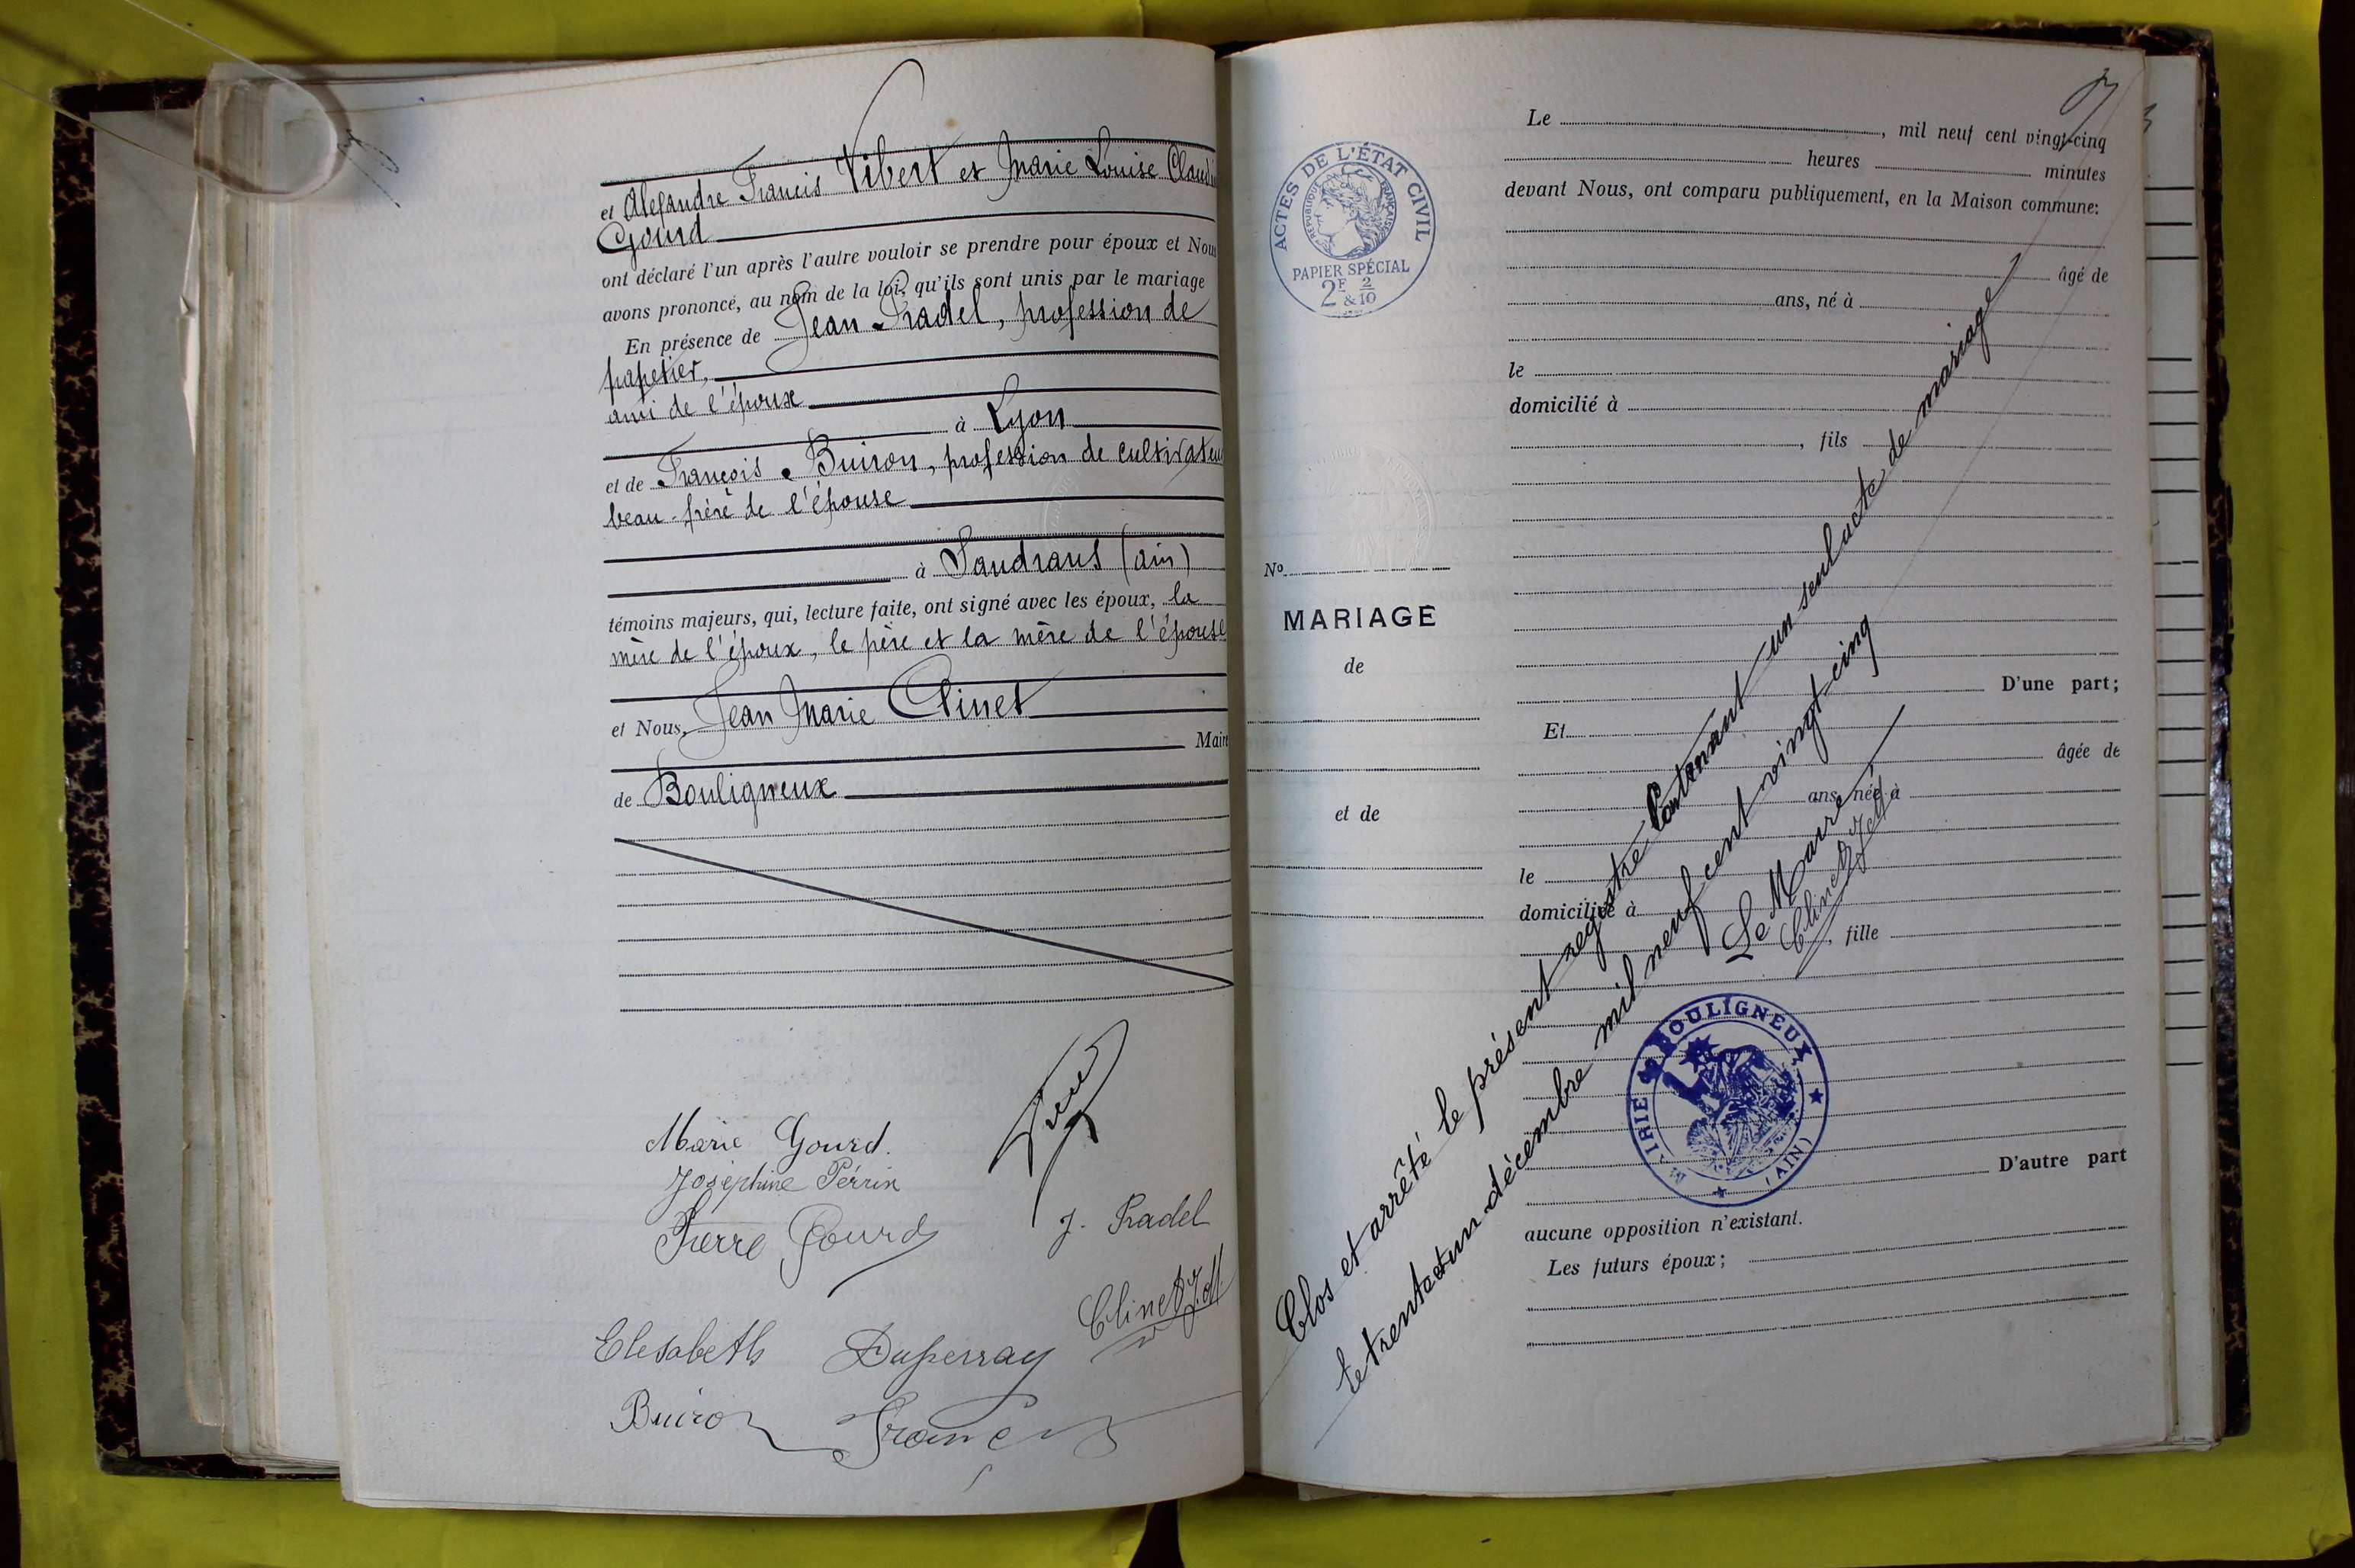 et Alexandre Francis Vibert et Marie Louise Claudi
Gourd
ont déclaré l'un après l'autre vouloir se prendre pour époux et Nous
avons prononcé, au nom de la loi, qu'ils sont unis par le mariage
En présence de Jean Pradel, profession de
papetier,
ami de l'époux
à Lyon
et de François Buiron, profession de cultivateur
beau-frère de l'épouse
à Sandrans (ain)
témoins majeurs, qui, lecture faite, ont signé avec les époux, la
mère de l'époux, le père et la mère de l'épouse
et Nous, Jean Marie Clinet
Maire
de Bouligneux
Marie Gourd.
Joséphine Perrin
Pierre Gourd
J. Pradel
Clinet J.M
Elesabeth Duperray
Buiron Francois
ACTES DE L'ÉTAT CIVIL
RÉPUBLIQUE FRANÇAISE
PAPIER SPÉCIAL
2F 2/10
&
Nº
MARIAGE
de
et de
Le , mil neuf cent vingt-cinq
heures minutes
devant Nous, ont comparu publiquement, en la Maison commune:
âgé de
ans, né à
le
domicilié à
, fils
D'une part;
Et
âgée de
ans, née à
le
domiciliée à
, fille
D'autre part
aucune opposition n'existant.
Les futurs époux;
Clos et arrêté le présent registre contenant un seul acte de mariage
le trente et un décembre mil neuf cent vingt-cinq
Le Maire
Clinet J.M
MAIRIE DE BOULIGNEUX
(AIN)